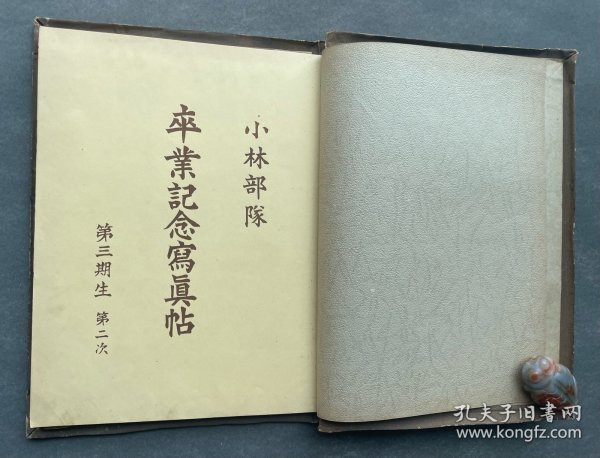 小林部隊
卒業記念寫眞帖
第三期生 第二次
孔夫子旧书网
www.kongfz.com